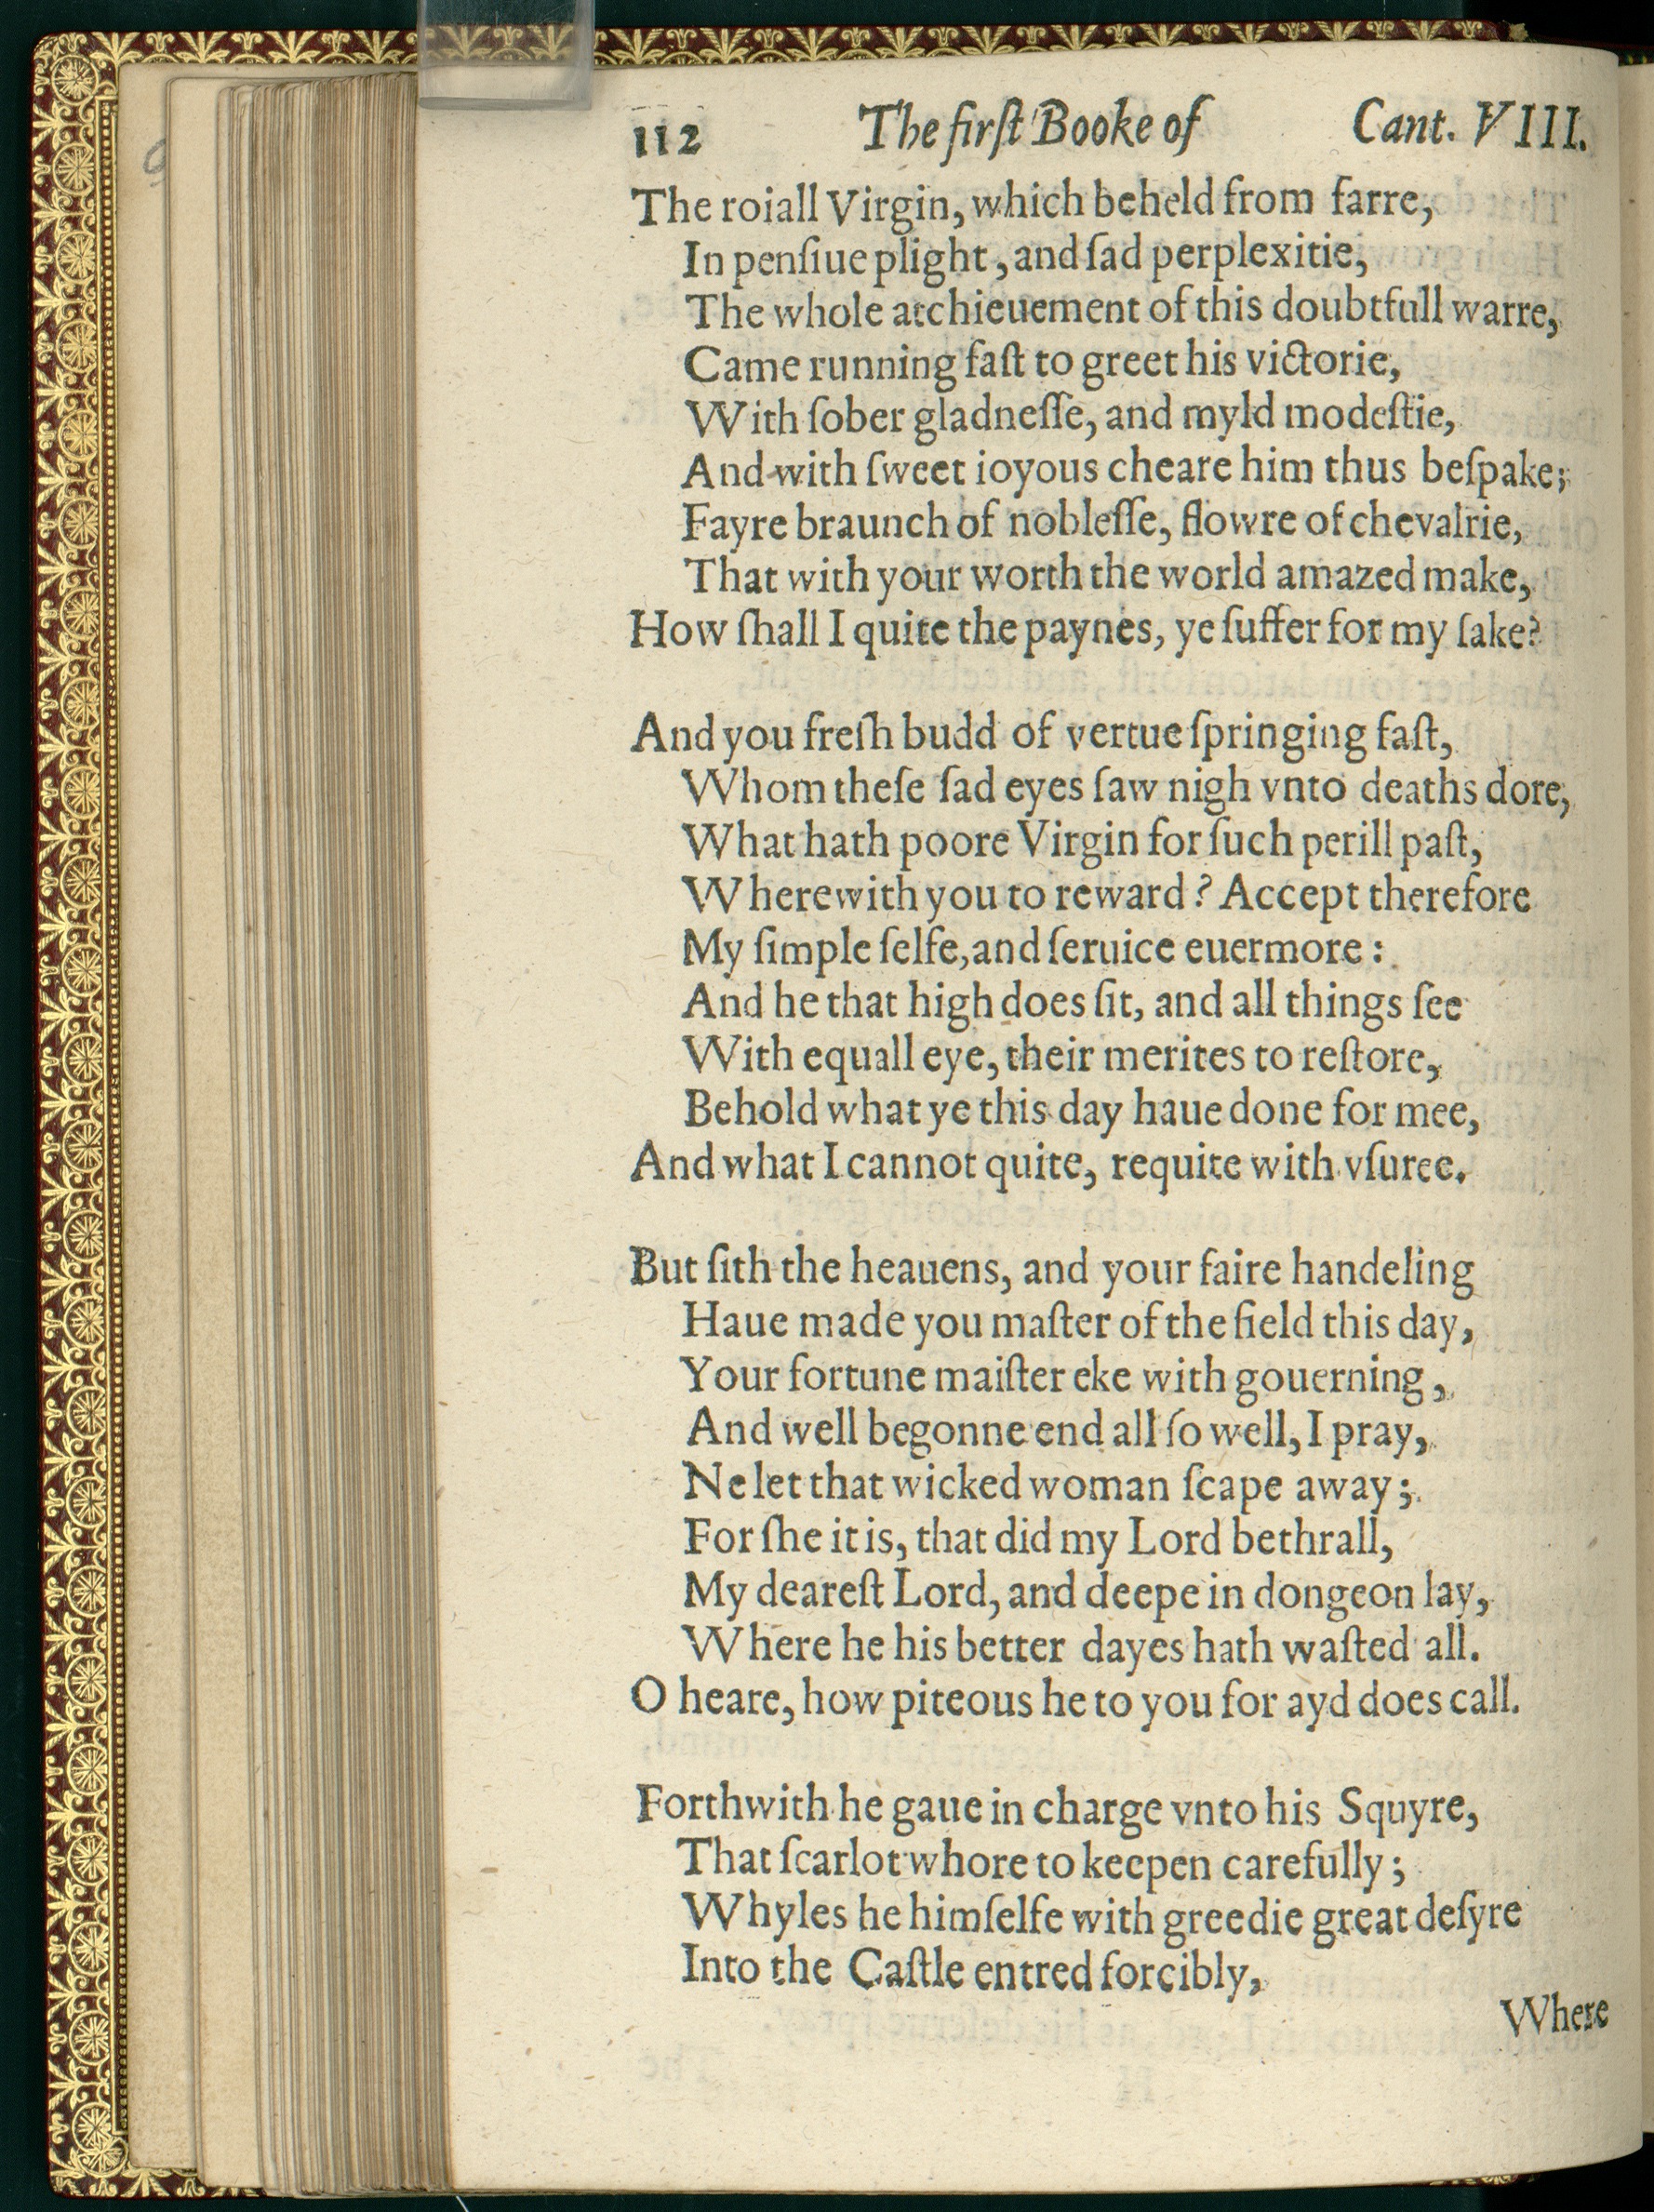 112 The firſt Booke of Cant. VIII.
The roiall Virgin, which beheld from farre,
In penſiue plight, and ſad perplexitie,
The whole atchieuement of this doubtfull warre,
Came running faſt to greet his victorie,
With ſober gladneſſe, and myld modeſtie,
And with ſweet ioyous cheare him thus beſpake;
Fayre braunch of nobleſſe, flowre of chevalrie,
That with your worth the world amazed make,
How ſhall I quite the paynes, ye ſuffer for my ſake?
And you freſh budd of vertue ſpringing faſt,
Whom theſe ſad eyes ſaw nigh vnto deaths dore,
What hath poore Virgin for ſuch perill paſt,
Wherewith you to reward? Accept therefore
My ſimple ſelfe, and ſeruice euermore:
And he that high does ſit, and all things ſee
With equall eye, their merites to reſtore,
Behold what ye this day haue done for mee,
And what I cannot quite, requite with vſuree.
But ſith the heauens, and your faire handeling
Haue made you maſter of the field this day,
Your fortune maiſter eke with gouerning,
And well begonne end all ſo well, I pray,
Ne let that wicked woman ſcape away;
For ſhe it is, that did my Lord bethrall,
My deareſt Lord, and deepe in dongeon lay,
Where he his better dayes hath waſted all.
O heare, how piteous he to you for ayd does call.
Forthwith he gaue in charge vnto his Squyre,
That ſcarlot whore to keepen carefully;
Whyles he himſelfe with greedie great deſyre
Into the Caſtle entred forcibly,
Where